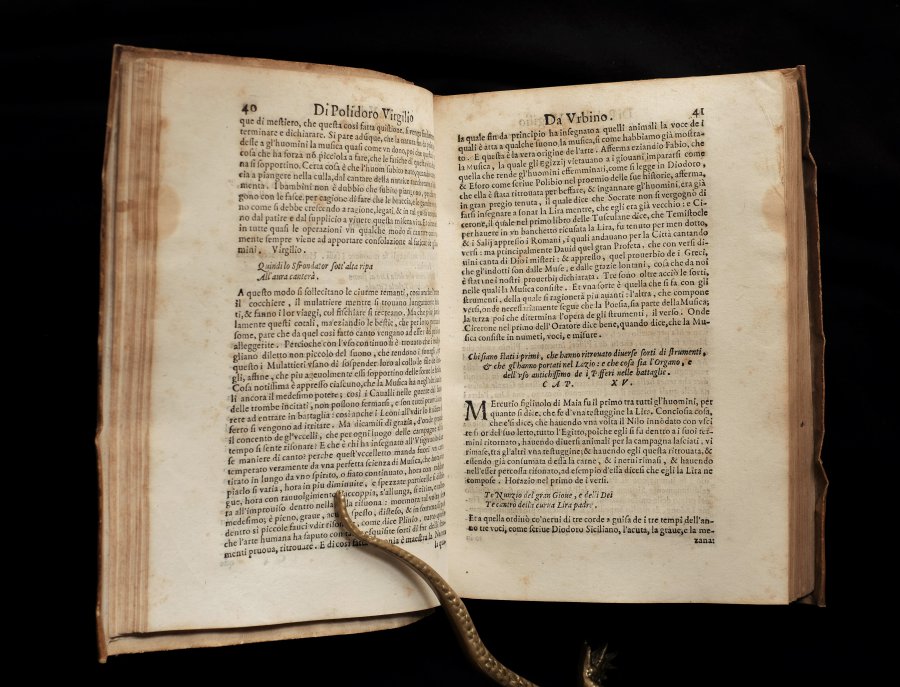 40
Di Polidoro Virgilio
que di mestiero, che questa così fatta quistione,
terminare e dichiarare. Si pare adūque, che la natura
delle a gl'huomini la musica quasi come vn dono, poi che
cosa che ha forza nō piccola a fare, che le fatiche
na si soppottino. Certa cosa è che l'huom subito nato,
cia a piangere nella culla, dal cantare della
menta. I bambini non è dubbio che subito piangono,
gono con le fasce, per cagione di fare che le braccia, e le
no come si debbe crescendo a ragione, legati, & in tal
no dal patire e dal supplicio a viuere questa misera vita.
in tutte quasi le operationi vn qualche modo di
mente sempre viene ad apportar consolatione al
mini. Virgilio.
Quindi lo Sfrondator sott'alta ripa
All'aura canterà.
A questo modo si sollecitano le ciurme remanti, così
il cocchiere, il mulattiere mentre si trouano
ti, & fanno i lor viaggi, col fischiare si recreano. Ma che
lamente questi cotali, ma eziandio le bestie, che per loro
some, pare che da quel così fatto canto vengano ad esser
alleggerite. Percioche con l'vso continuo si è trouato che
gliano diletto non piccolo del suono, che rendono i
questo i Mulattieri vsano di sospender loro al collo
gli, affine, che più ageuolmente essi soppottino delle some
Cosa notissima è appresso ciascuno, che la Musica ha
li ancora il medesimo potere; così i Caualli nelle guerre
delle trombe incitati, non possono fermarsi, e son tutti
rare ad entrare in battaglia: così anche i Leoni all'vdir lo
ferro si vengono ad irritare. Ma dicami di grazia, donde
il concento de gl'vccelli, che per ogni luogo delle campagne
tempo si sente risonare? E che è chi ha insegnato all'Vsignuolo
se maniere di canto? perche quest'vccelletto manda fuori
temperato veramente da vna perfetta scienza di Musica, che
tirato in lungo da vno spirito, o fiato continuato, hora con
piarlo si varia, hora in più diminuite, e spezzate particelle
gue, hora con rauuolgimento s'accoppia, s'allunga,
ta all'improuiso dentro nella risuona: mormora tal volta
medesimo; è pieno, graue, acuto, spesso, disteso, &
dentro si piccole fauci vdir risonare come dice Plinio,
che l'arte humana ha saputo con esquisite sorti di
menti pruoua, ritrouare. E di così fatta è maestra la
la qua-
Da Vrbino.
41
la quale fin da principio ha insegnato a quelli animali la voce de i
quali è atta a qualche suono, la musica, si come habbiamo già mostra-
to. E questa è la vera origine de l'arte. Afferma eziandio Fabio, che
la Musica, la quale gli Egizzij vietauano a i giouani impararsi come
quella che rende gl'huomini effemminati, come si legge in Diodoro,
& Eforo come scriue Polibio nel proemio delle sue historie, afferma,
che ella è stata ritrouata per beffare, & ingannare gl'huomini, era già
in gran pregio tenuta, il quale dice che Socrate non si vergognò di
farsi insegnare a sonar la Lira mentre, che egli era già vecchio: e Ci-
cerone, il quale nel primo libro delle Tusculane dice, che Temistocle
per hauere in vn banchetto ricusata la Lira, fu tenuto per men dotto,
& i Salij appresso i Romani, i quali andauano per la Città cantando
versi: ma principalmente Dauid quel gran Profeta, che con versi di-
uini canta di Dio i misteri: & appresso, quel prouerbio de i Greci,
che gl'indotti son dalle Muse, e dalle grazie lontani, cosa che da noi
è stata ne i nostri prouerbij dichiarata. Tre sono oltre acciò le sorti,
nelle quali la Musica consiste. Et vna sorte è quella che si fa con gli
strumenti, della quale si ragionerà più auanti: l'altra, che compone
versi, onde necessariamente segue che la Poesia, sia parte della Musica;
la terza poi che ditermina l'opera de gli strumenti, il verso. Onde
Cicerone nel primo dell'Oratore dice bene, quando dice, che la Mu-
sica consiste in numeri, voci, e misure.
Chi siano stati i primi, che hanno ritrouato diuerse sorti di strumenti,
& che gl'hanno portati nel Lazio: e che cosa sia l'Organo, e
dell'vso antichissimo de i Pifferi nelle battaglie.
CAP. XV.
Mercurio figliuolo di Maia fu il primo tra tutti gl'huomini, per
quanto si dice, che fe d'vna testuggine la Lira. Conciosia cosa,
che e' si dice, che hauendo vna volta il Nilo inōdato con vsci-
re fuor del suo letto, tutto l'Egitto, poiche egli si fu dentro a i suoi ter-
mini ritornato, hauendo diuersi animali per la campagna lasciati, vi
rimase, tra gl'altri vna testuggine; & hauendo egli questa ritrouata, &
essendo già consumata della carne, & i nerui rimasi, & hauendo
nell'esser percossa risonato, ad esempio d'essa dicesi che egli la Lira ne
compose. Horazio nel primo de i versi.
Te Nunzio del gran Gioue, e delli Dei
Te canto della curua Lira padre.
Era quella ordinò co'nerui di tre corde a guisa de i tre tempi dell'an-
no tre voci, come scriue Diodoro Siciliano, l'acuta, la graue, e la me-
zana: